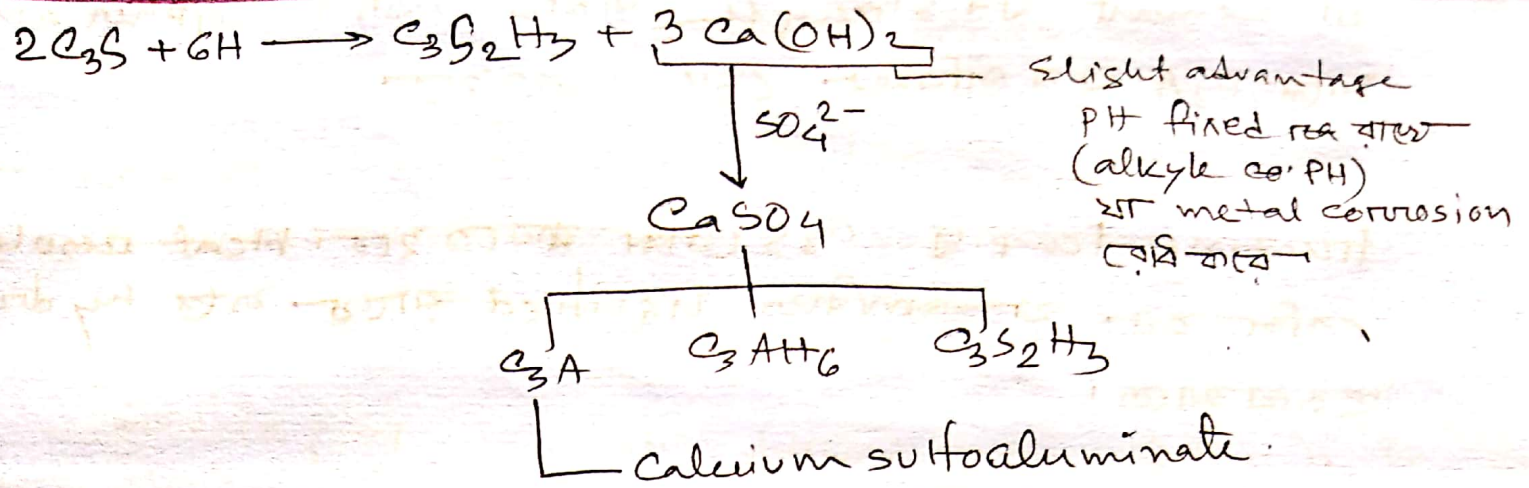 2C₃S + 6H ⟶ C₃S₂H₃ + 3 Ca(OH)₂
Slight advantage
PH fixed রাখে
(alkyle PH)
SO₄²⁻
যা metal corrosion
রোধ করে
CaSO₄
C₃A C₃AH₆ C₃S₂H₃
Calcium sulfoaluminate.